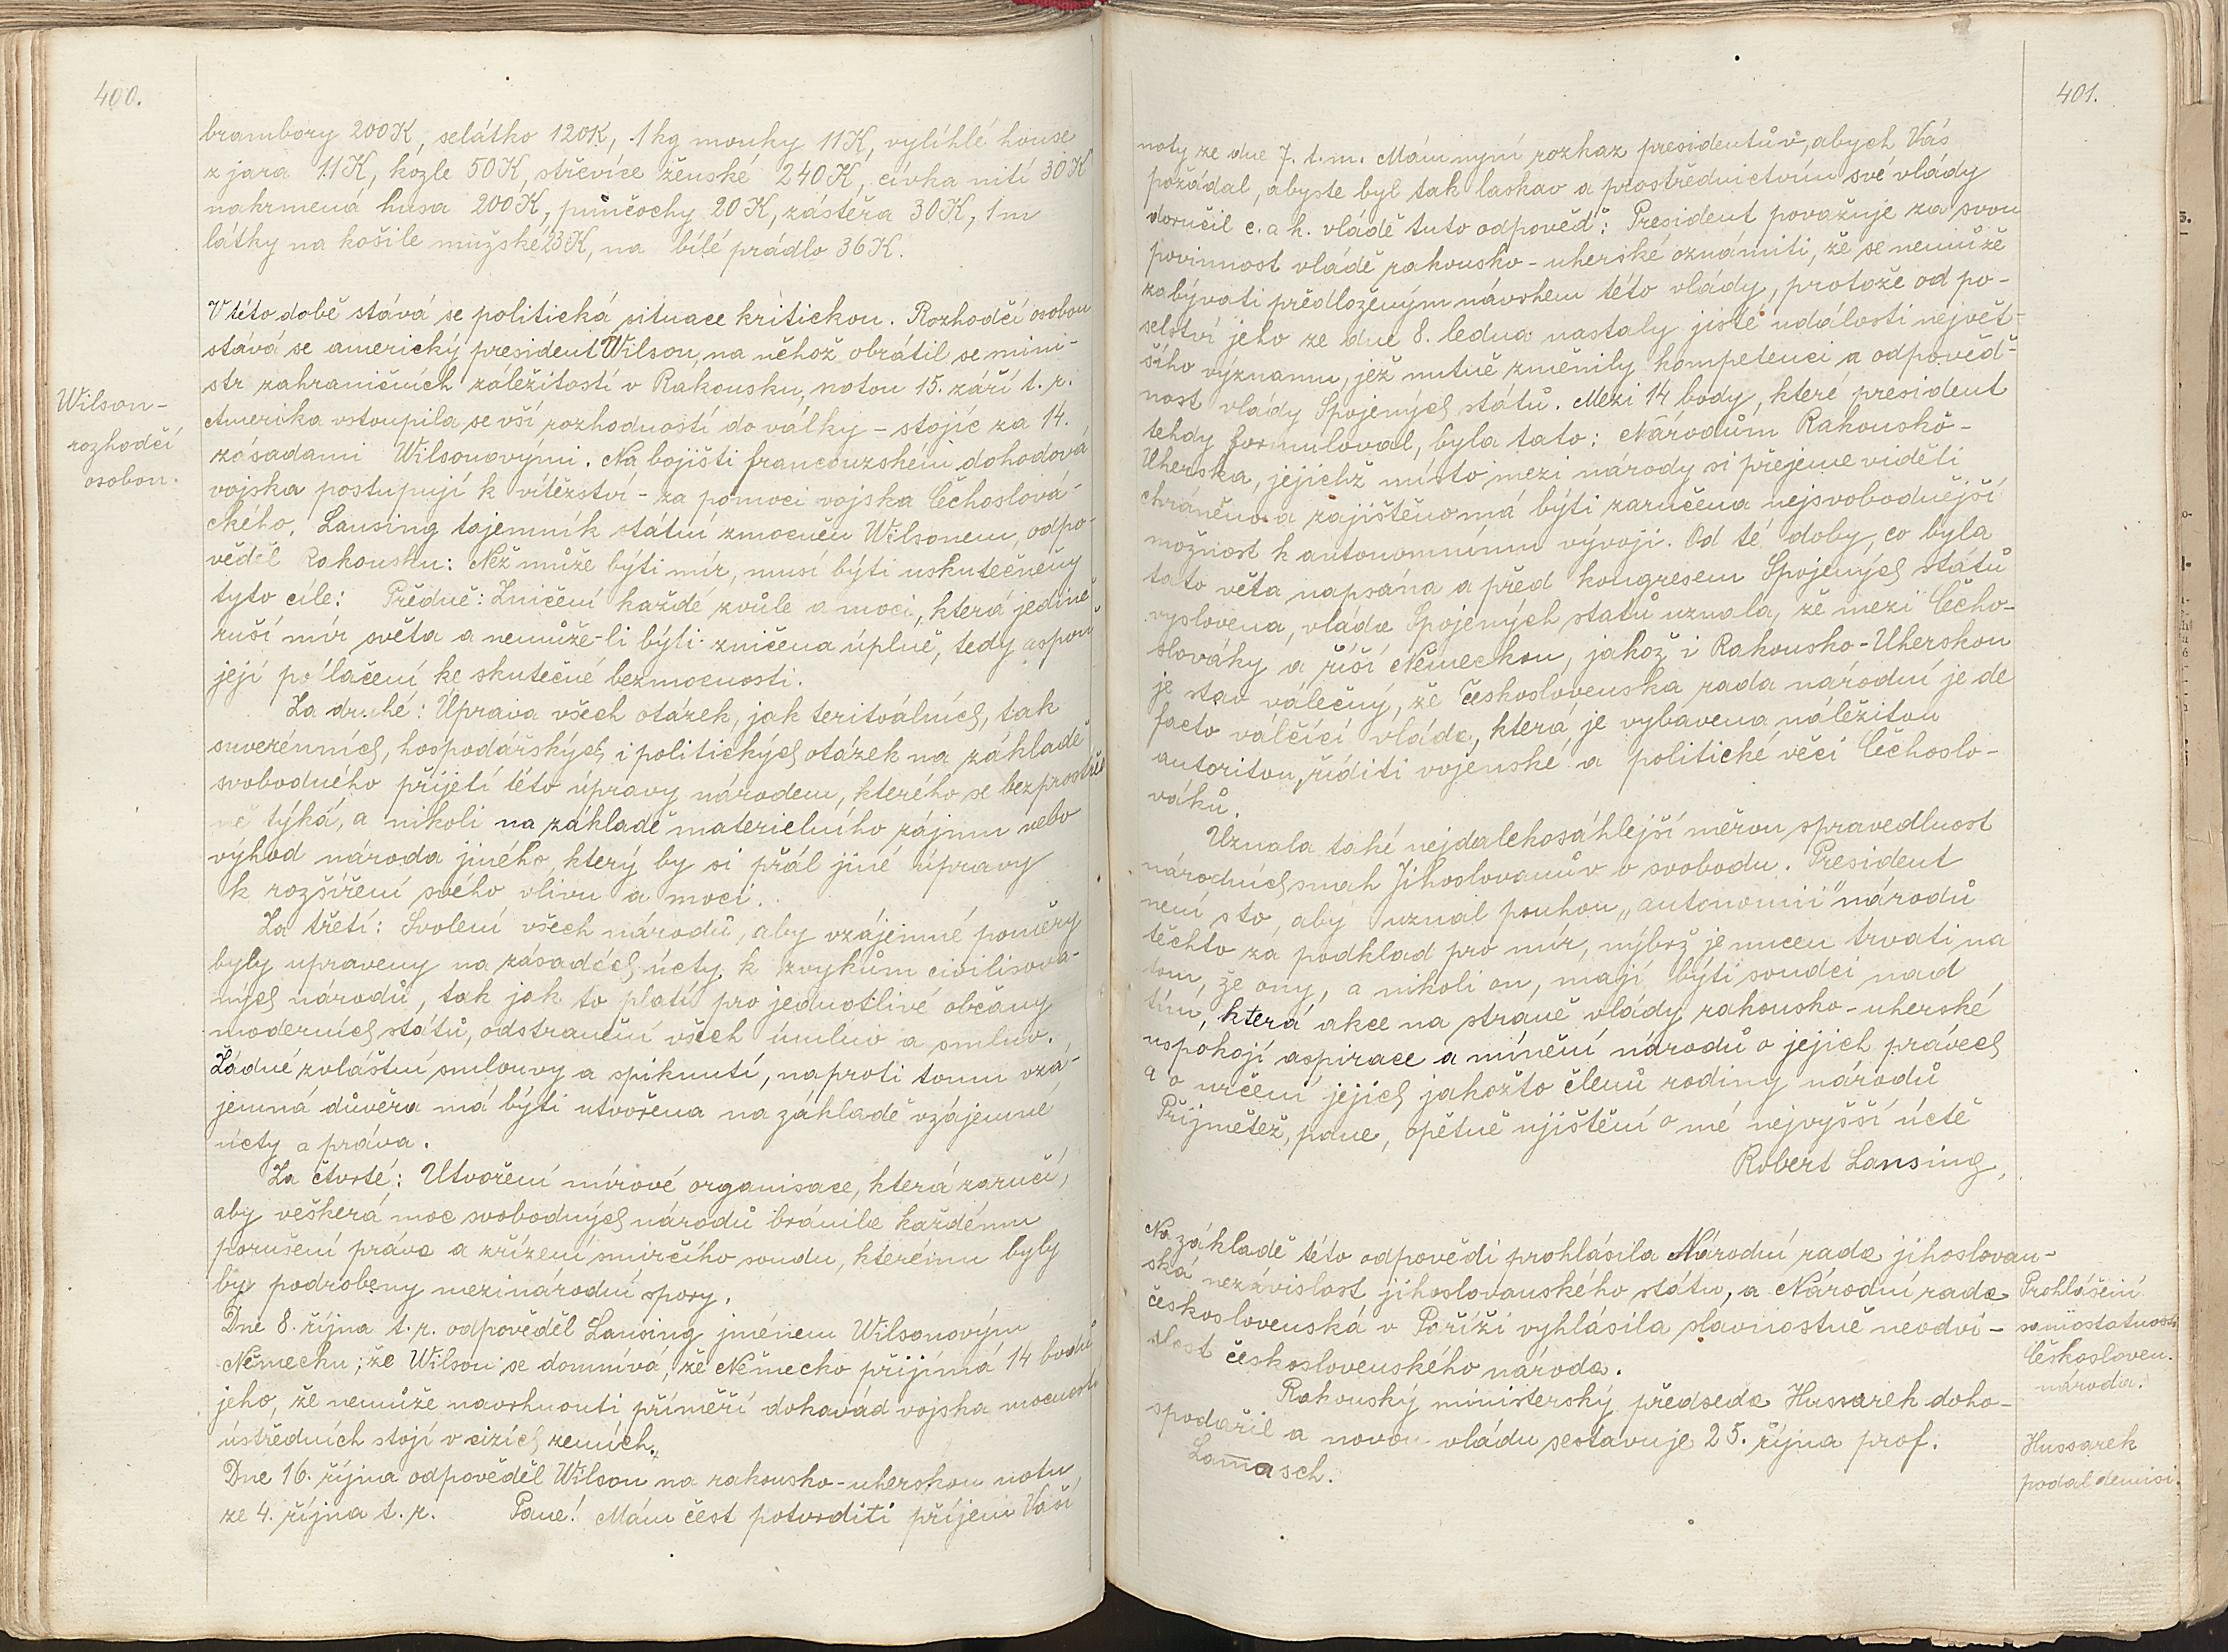 400.
brambory 200K, selátko 120K, 1kg mouky 11K, vylíhlé house
z jara 11K, kozle 50K, střevíce ženské 240K, cívka nití 30K
nakrmená husa 200K, punčochy 20K, zástěra 30K, 1m
látky na košile mužské 23K, na bílé prádlo 36K.
V této době stává se politická situace kritickou. Rozhodčí osobou
stává se americký president Wilson, na něhož obrátil se mini-
str zahraničních záležitostí v Rakousku, notou 15. září t. r.
Wilson-
rozhodčí
osobou.
Amerika vstoupila se vší rozhodností do války - stojíc za 14.
zásadami Wilsonovými. Na bojišti francouzském dohodová
vojska postupují k vítězství - za pomoci vojska Čechoslová-
ckého. Lansing tajemník státní zmocněn Wilsonem, odpo-
věděl Rakousku: Než může býti mír, musí býti uskutečněny
tyto cíle: Předně: Zničení každé zvůle a moci, která jedině
ruší mír světa a nemůže-li býti zničena úplně, tedy aspoň
její potlačení ke skutečné bezmocnosti.
Za druhé: Úprava všech otázek, jak teritoálních, tak
suverénních, hospodářských i politických otázek na základě
svobodného přijetí této úpravy národem, kterého se bezprostřed
ně týká, a nikoli na základě materielního zájmu nebo
výhod národa jiného, který by si přál jiné úpravy
k rozšíření svého vlivu a moci.
Za třetí: Svolení všech národů, aby vzájemné poměry
byly upraveny na zásadách úcty k zvykům civilisova-
ných národů, tak jak to platí pro jednotlivé občany
moderních států, odstranění všech úmluv a smluv.
Žádné zvláštní smlouvy a spiknutí, naproti tomu vzá-
jemná důvěra má býti utvořena na základě vzájemné
úcty a práva.
Za čtvrté: Utvoření mírové organisace, která zaručí,
aby veškerá moc svobodných národů bránila každému
porušení práva a zřízení smírčího soudu, kterému byly
by podrobeny mezinárodní spory.
Dne 8. října t. r. odpověděl Lansing jménem Wilsonovým
Německu; že Wilson se domnívá, že Německo přijímá 14 bodů
jeho, že nemůže navrhnouti příměří dokavád vojska mocností
ústředních stojí v cizích zemích.
Dne 16. října odpověděl Wilson na rakousko-uherskou notu
ze 4. října t. r. Pane! Mám čest potvrditi příjem Vaší
401.
noty ze dne 7. t. m. Mám nyní rozkaz presidentův, abych Vás
požádal, abyste byl tak laskav a prostřednictvím své vlády
doručil c. a k. vládě tuto odpověď: President považuje za svou
povinnost vládě rakousko-uherské oznámiti, že se nemůže
zabývati předloženým návrhem této vlády, protože od po-
selství jeho ze dne 8. ledna nastaly jisté události největ-
šího významu, jež nutně změnily kompetenci a odpověd-
nost vlády Spojených států. Mezi 14 body, které president
tehdy formuloval, byla tato: Národům Rakousko-
Uherska, jejichž místo mezi národy si přejeme viděti
chráněno a zajištěno má býti zaručena nejsvobodnější
možnost k autonomnímu vývoji. Od té doby, co byla
tato věta napsána a před kongresem Spojených států
vyslovena, vláda Spojených statů uznala, že mezi Čecho-
slováky a říší Německou, jakož i Rakousko-Uherskou
je stav válečný, že Československa rada národní je de
facto válčící vláda, která je vybavena náležitou
autoritou, říditi vojenské a politické věci Čechoslo-
váků.
Uznala také nejdalekosáhlejší měrou spravedlnost
národních snah Jihoslovanův o svobodu. President
není sto, aby uznal pouhou "autonomii" národů
těchto za podklad pro mír, nýbrž je nucen trvati na
tom, že ony, a nikoli on, mají býti soudci nad
tím, která akce na straně vlády rakousko-uherské
uspokojí aspirace a mínění národů o jejich právech
a o určení jejich jakožto členů rodiny národů
Přijmětež, pane, opětné ujištění o mé nejvyšší úctě
Robert Lansing,
Na základě této odpovědi prohlásila Národní rada jihoslovan-
ská nezávislost jihoslovanského státu, a Národní rada
československá v Paříži vyhlásila slavnostně neodvi-
slost československého národa.
Prohlášení
samostatnosti
Českosloven.
národa.
Rakouský ministerský předseda Hussarek doho-
spodařil a novou vládu sestavuje 25. října prof.
Lam̅asch.
Hussarek
podal demisi.